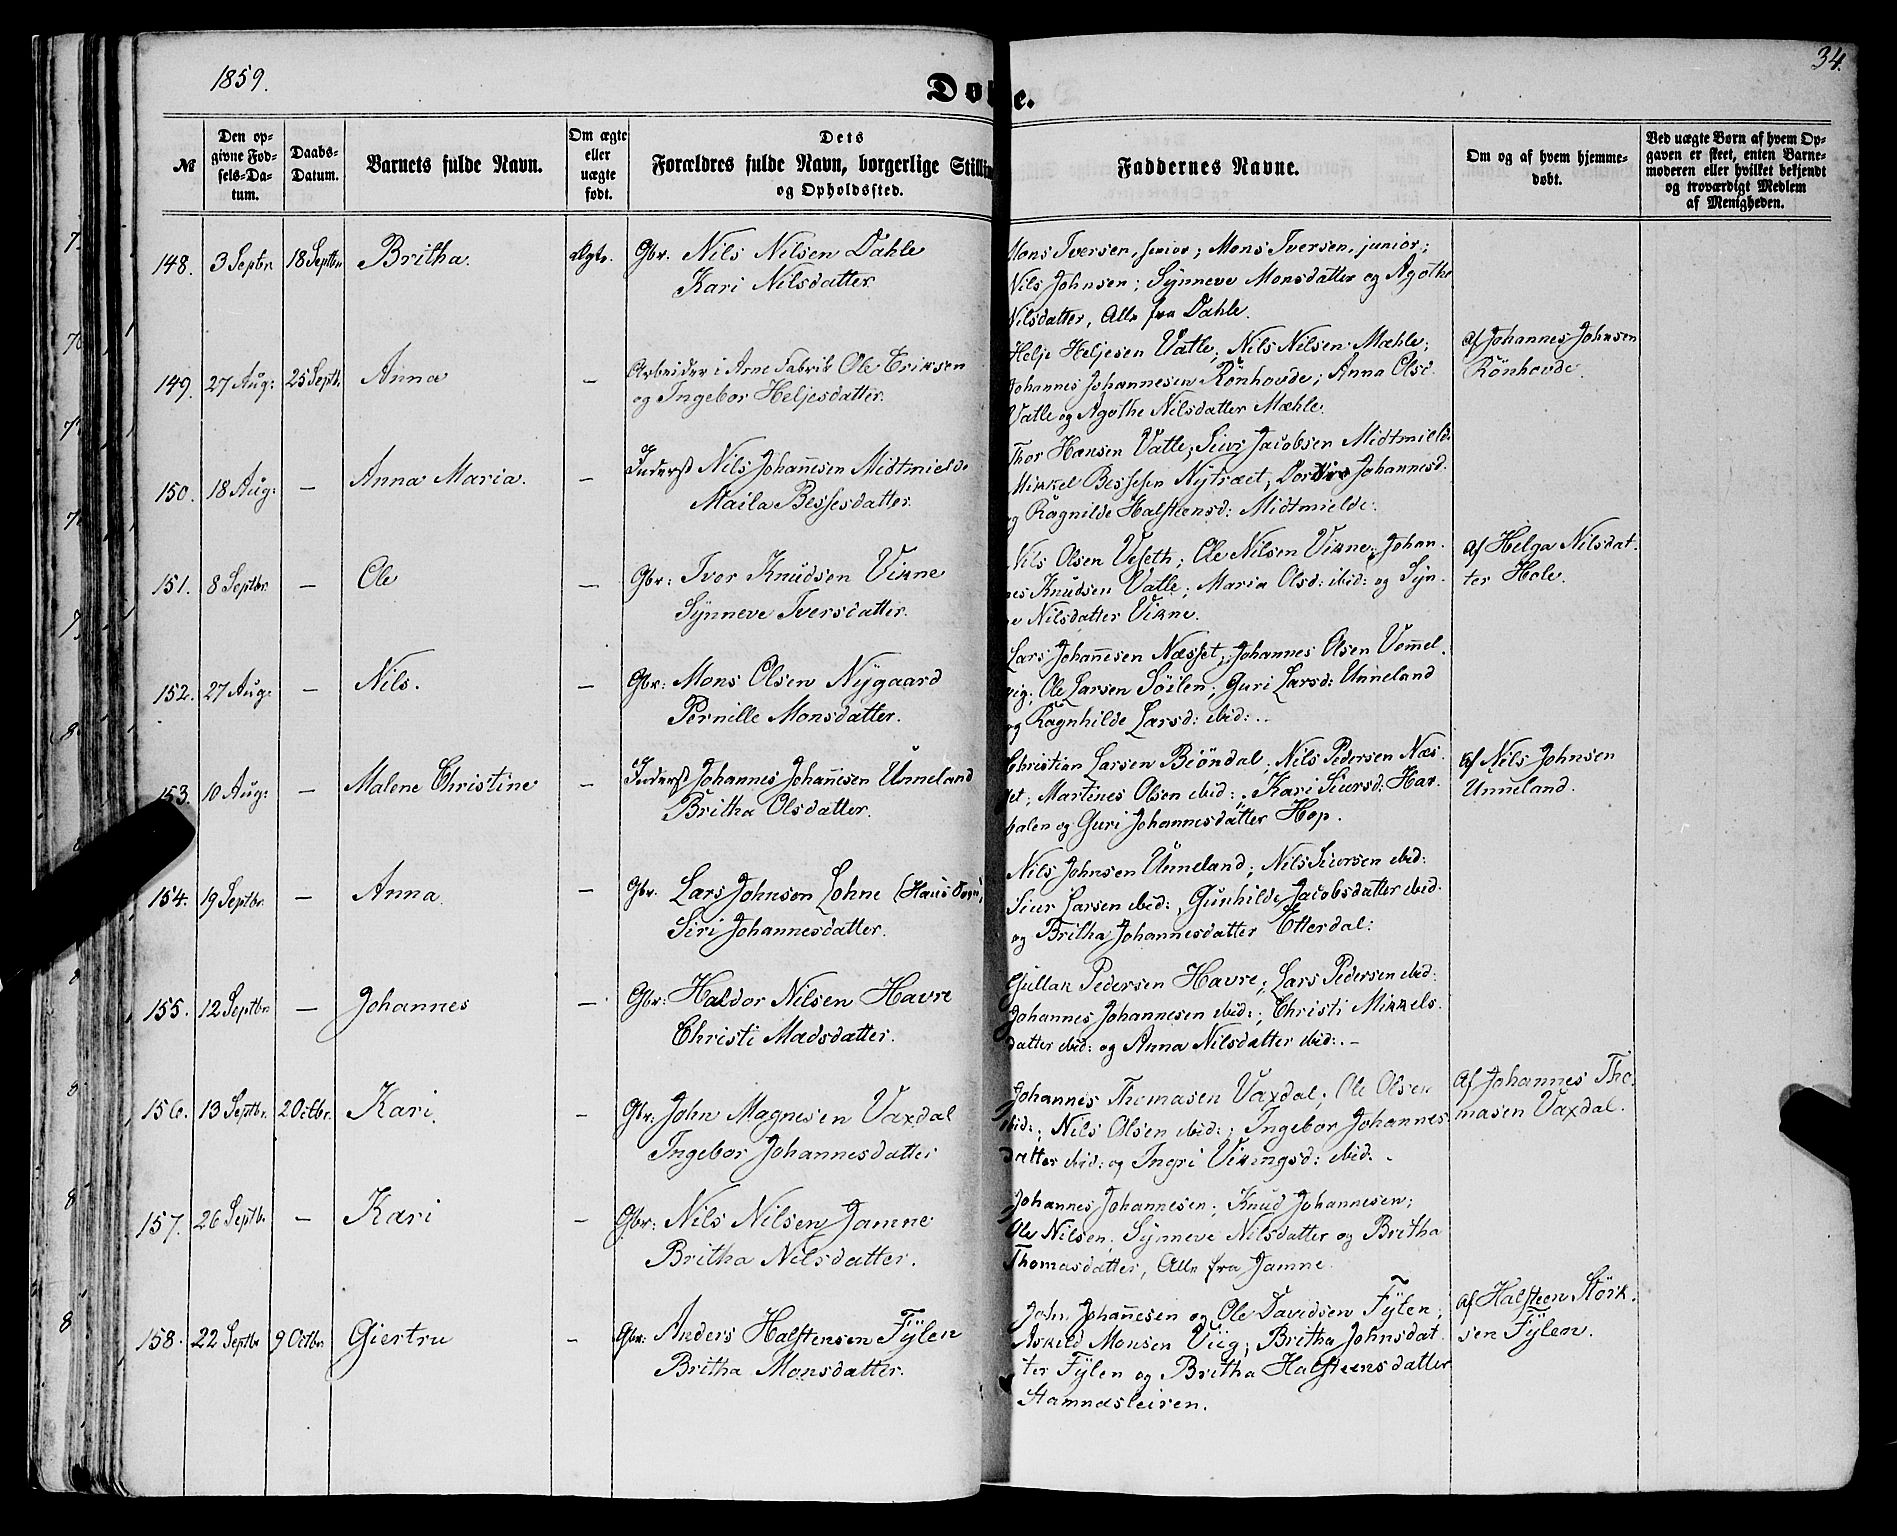 1859.
34.
Døbte.
№
Den op-
givne Fød-
sels-Da-
tum.
Daabs-
Datum.
Barnets fulde Navn.
Om ægte
eller
uægte
født.
Dets
Forældres fulde Navn, borgerlige Stillin
og Opholdssted.
Faddernes Navne.
Om og af hvem hjemme-
døbt.
Ved uægte Børn af hvem Op-
gaven er skeet, enten Barne-
moderen eller hvilket bekjendt
og troværdigt Medlem
af Menigheden.
148. 3 Septbr 18 Septbr Britha. Ægte. Gbr. Nils Nilsen Dahle
Kari Nilsdatter
Mons Iversen, senior; Mons Iversen, junior;
Nils Johnsen; Synneve Monsdatter og Agothe
Nilsdatter, Alle fra Dahle.
149. 27 Aug: 25 Septbr Anna — Arbeider i Arne Fabrik Ole Eriksen
og Ingebor Heljesdatter.
Helje Heljesen Vatle; Nils Nilsen Mæhle;
Johannes Johannesen Rönhovde; Anna Olsd.
Vatle og Agothe Nilsdatter Mæhle.
af Johannes Johnsen
Rönhovde.
150. 18 Aug: — Anna Maria. — Inderst Nils Johannesen Midtmielde
Maila Bessesdatter.
Thor Hansen Vatle; Siur Jacobsen Midtmield.
Mikkel Bessesen Nytræet; Dordi Johannesd.
og Ragnilde Halsteensd: Midtmielde.
151. 8 Septbr. — Ole — Gbr: Iver Knudsen Vikne
Synneve Iversdatter.
Nils Olsen Veseth; Ole Nilsen Vikne; Johan-
nes Knudsen Vatle; Maria Olsd: ibid: og Syn-
ve Nilsdatter Vikne.
af Helga Nilsdat-
ter Hole.
152. 27 Aug: — Nils. — Gbr: Mons Olsen Nygaard
Pernille Monsdatter.
Lars Johannesen Næsset; Johannes Olsen Vemmel-
vig; Ole Larsen Söilen; Guri Larsd: Unneland
og Ragnhilde Larsd: ibid:.
153. 10 Aug: — Malene Christine — Inderst Johannes Johannesen Unneland
Britha Olsdatter.
Christian Larsen Biöndal; Nils Pedersen Næs-
set; Martines Olsen ibid:; Kari Siursd: Har-
balen og Guri Johannesdatter Hop.
af Nils Johnsen
Unneland.
154. 19 Septbr. — Anna — Gbr. Lars Johnson Lohne (Haus Sogn)
Siri Johannesdatter.
Nils Johnsen Unneland; Nils Siursen ibid:
Siur Larsen ibid:, Gunhilde Jacobsdatter ibid:
og Britha Johannesdatter Etterdal:
155. 12 Septbr — Johannes — Gbr: Haldor Nilsen Havre
Christi Madsdatter.
Gullak Pedersen Havre; Lars Pedersen ibid:
Johannes Johannesen ibid:; Christi Mikkels-
datter ibid: og Anna Nilsdatter ibid:. -
156. 13 Septbr. 2 Octbr. Kari. — Gbr: John Magnesen Vaxdal
Ingebor Johannesdatter
Johannes Thomasen Vaxdal; Ole Olsen
ibid:; Nils Olsen ibid:; Ingebor Johannes-
datter ibid: og Ingri Vikingsd: ibid: -
af Johannes Tho-
masen Vaxdal.
157. 26 Septbr. — Kari — Gbr: Nils Nilsen Jamne
Britha Nilsdatter.
Johannes Johannesen; Knud Johannesen;
Ole Nilsen; Synneve Nilsdatter og Britha
Thomasdatter, Alle fra Jamne.
158. 22 Septbr 9 Octbr Giertru — Gbr: Anders Halstensen Fylen
Britha Monsdatter.
John Johannesen og Ole Davidsen Fylen;
Askild Monsen Viig; Britha Johnsdat-
ter Fylen og Britha Halsteensdatter
Stamnæsleiren.
af Halsteen Störk-
sen Fylen.